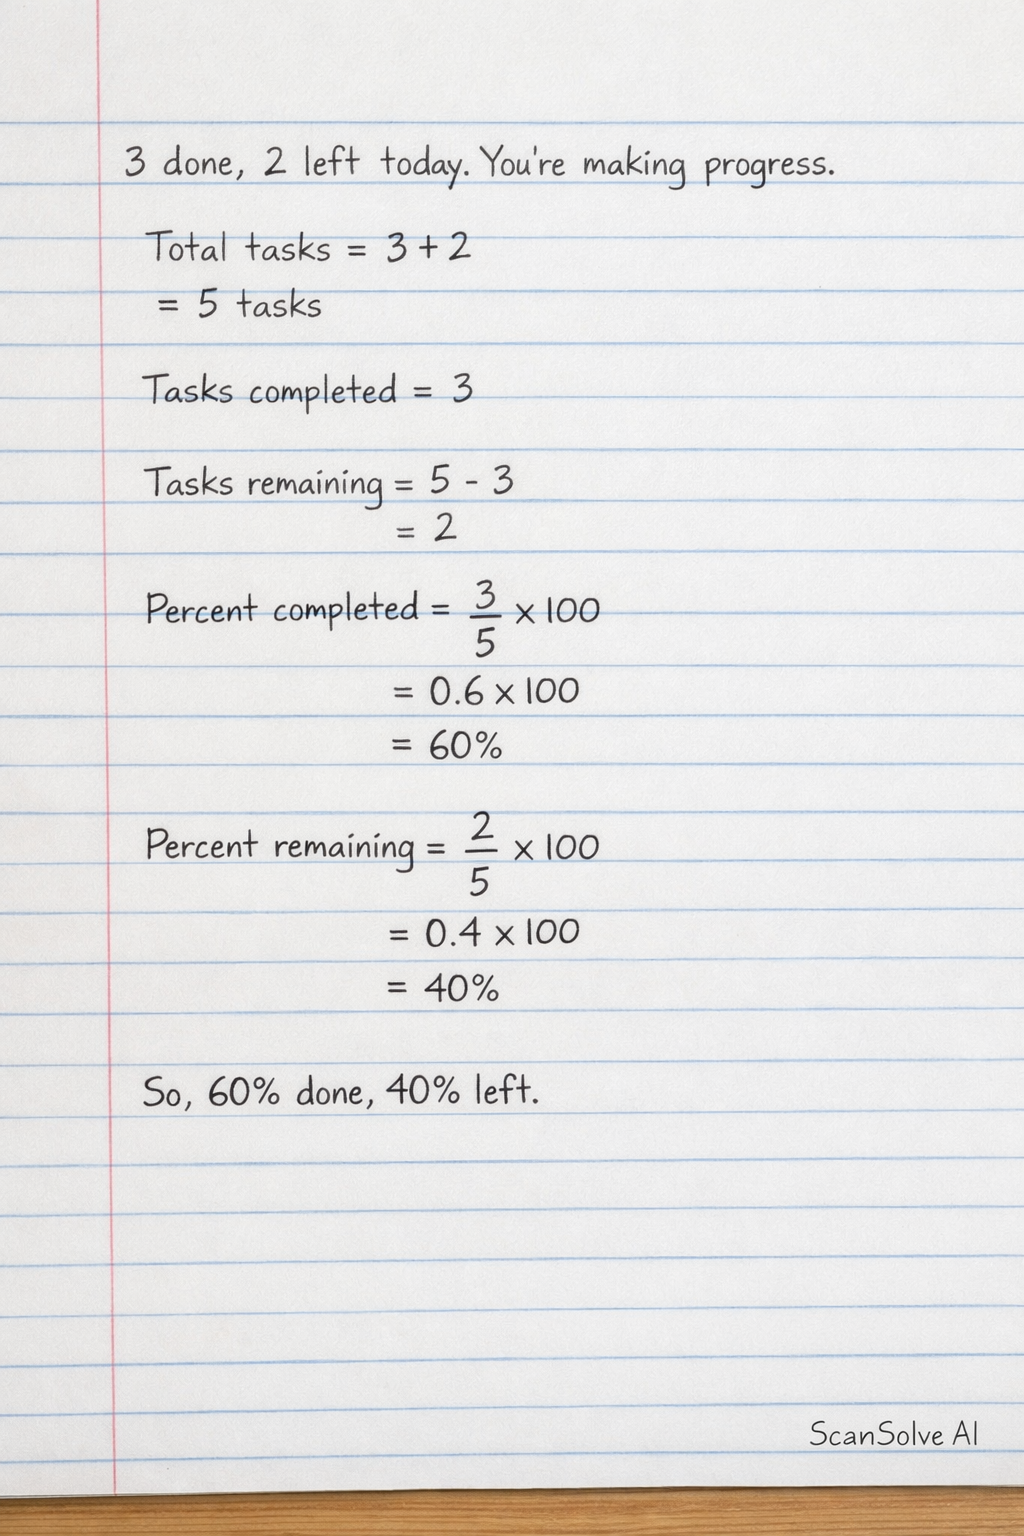 3 done, 2 left today. You're making progress.
Total tasks = 3 + 2
= 5 tasks
Tasks completed = 3
Tasks remaining = 5 - 3
= 2
Percent completed = 3/5 × 100
= 0.6 × 100
= 60%
Percent remaining = 2/5 × 100
= 0.4 × 100
= 40%
So, 60% done, 40% left.
ScanSolve AI